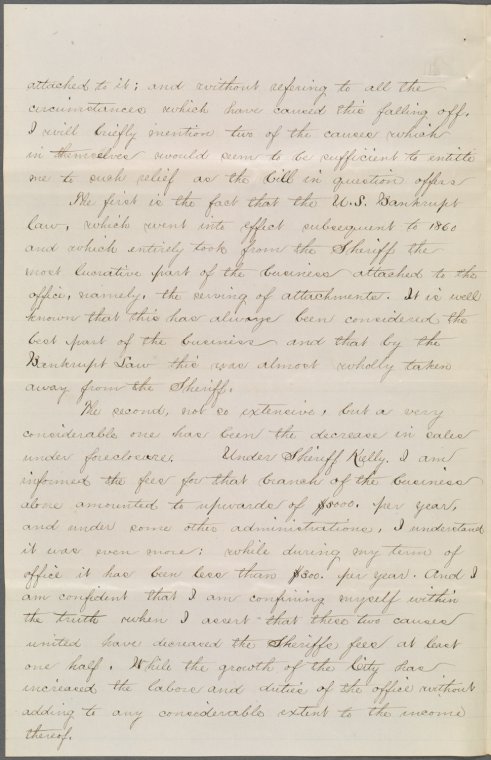 attached to it; and without refering to all the
circumstances which have caused this falling off.
I will briefly mention two of the causes which
in themselves would seem to be sufficient to entitle
me to such relief as the bill in question offers
The first is the fact that the U.S. Bankrupt
law, which went into effect subsequent to 1860
and which entirely took from the Sheriff the
most lucrative part of the business attached to the
office, namely, the serving of attachments. It is well
known that this has always been considered the
best part of the business and that by the
Bankrupt Law this was almost wholly taken
away from the Sheriff.
The second, not so extensive, but a very
considerable one has been the decrease in sales
under foreclosure. Under Sheriff Kelly. I am
informed the fees for that branch of the business
alone amounted to upwards of $5000. per year,
and under some other administrations, I understand
it was even more: while during my term of
office it has been less than $300. per year. And I
am confident that I am confining myself within
the truth when I assert that these two causes
united have decreased the Sheriffs fees at least
one half. While the growth of the City has
increased the labors and duties of the office without
adding to any considerable extent to the income
thereof.